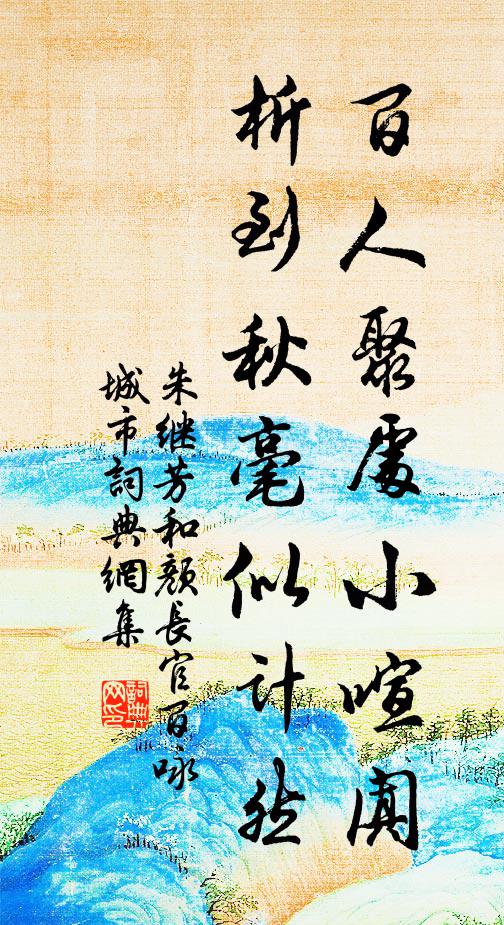 百人聚處小喧闐
析到秋毫似計然
朱继芳和顏長官百咏
城市詞典網集
詞典网印